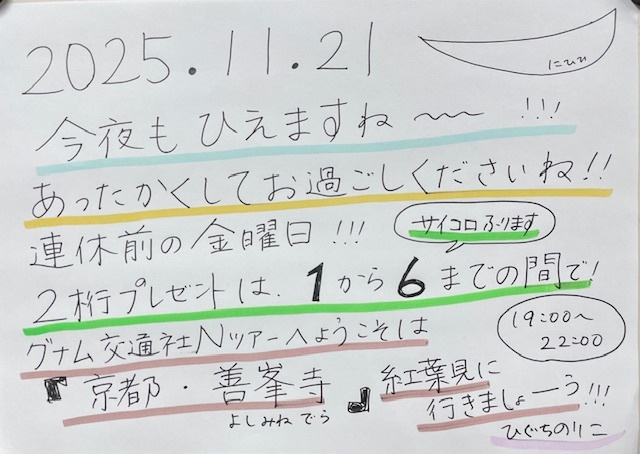 2025.11.21
にひひ
今夜もひえますね〜〜 !!!
あったかくしてお過ごしくださいね!!
連休前の金曜日!!!
サイコロふります
2桁プレゼントは、1から6までの間で!
19:00〜
22:00
グナム交通社Nツアーへようこそは
『京都・善峯寺』
よしみねでら
紅葉見に
行きましょーう!!!
ひぐちのりこ